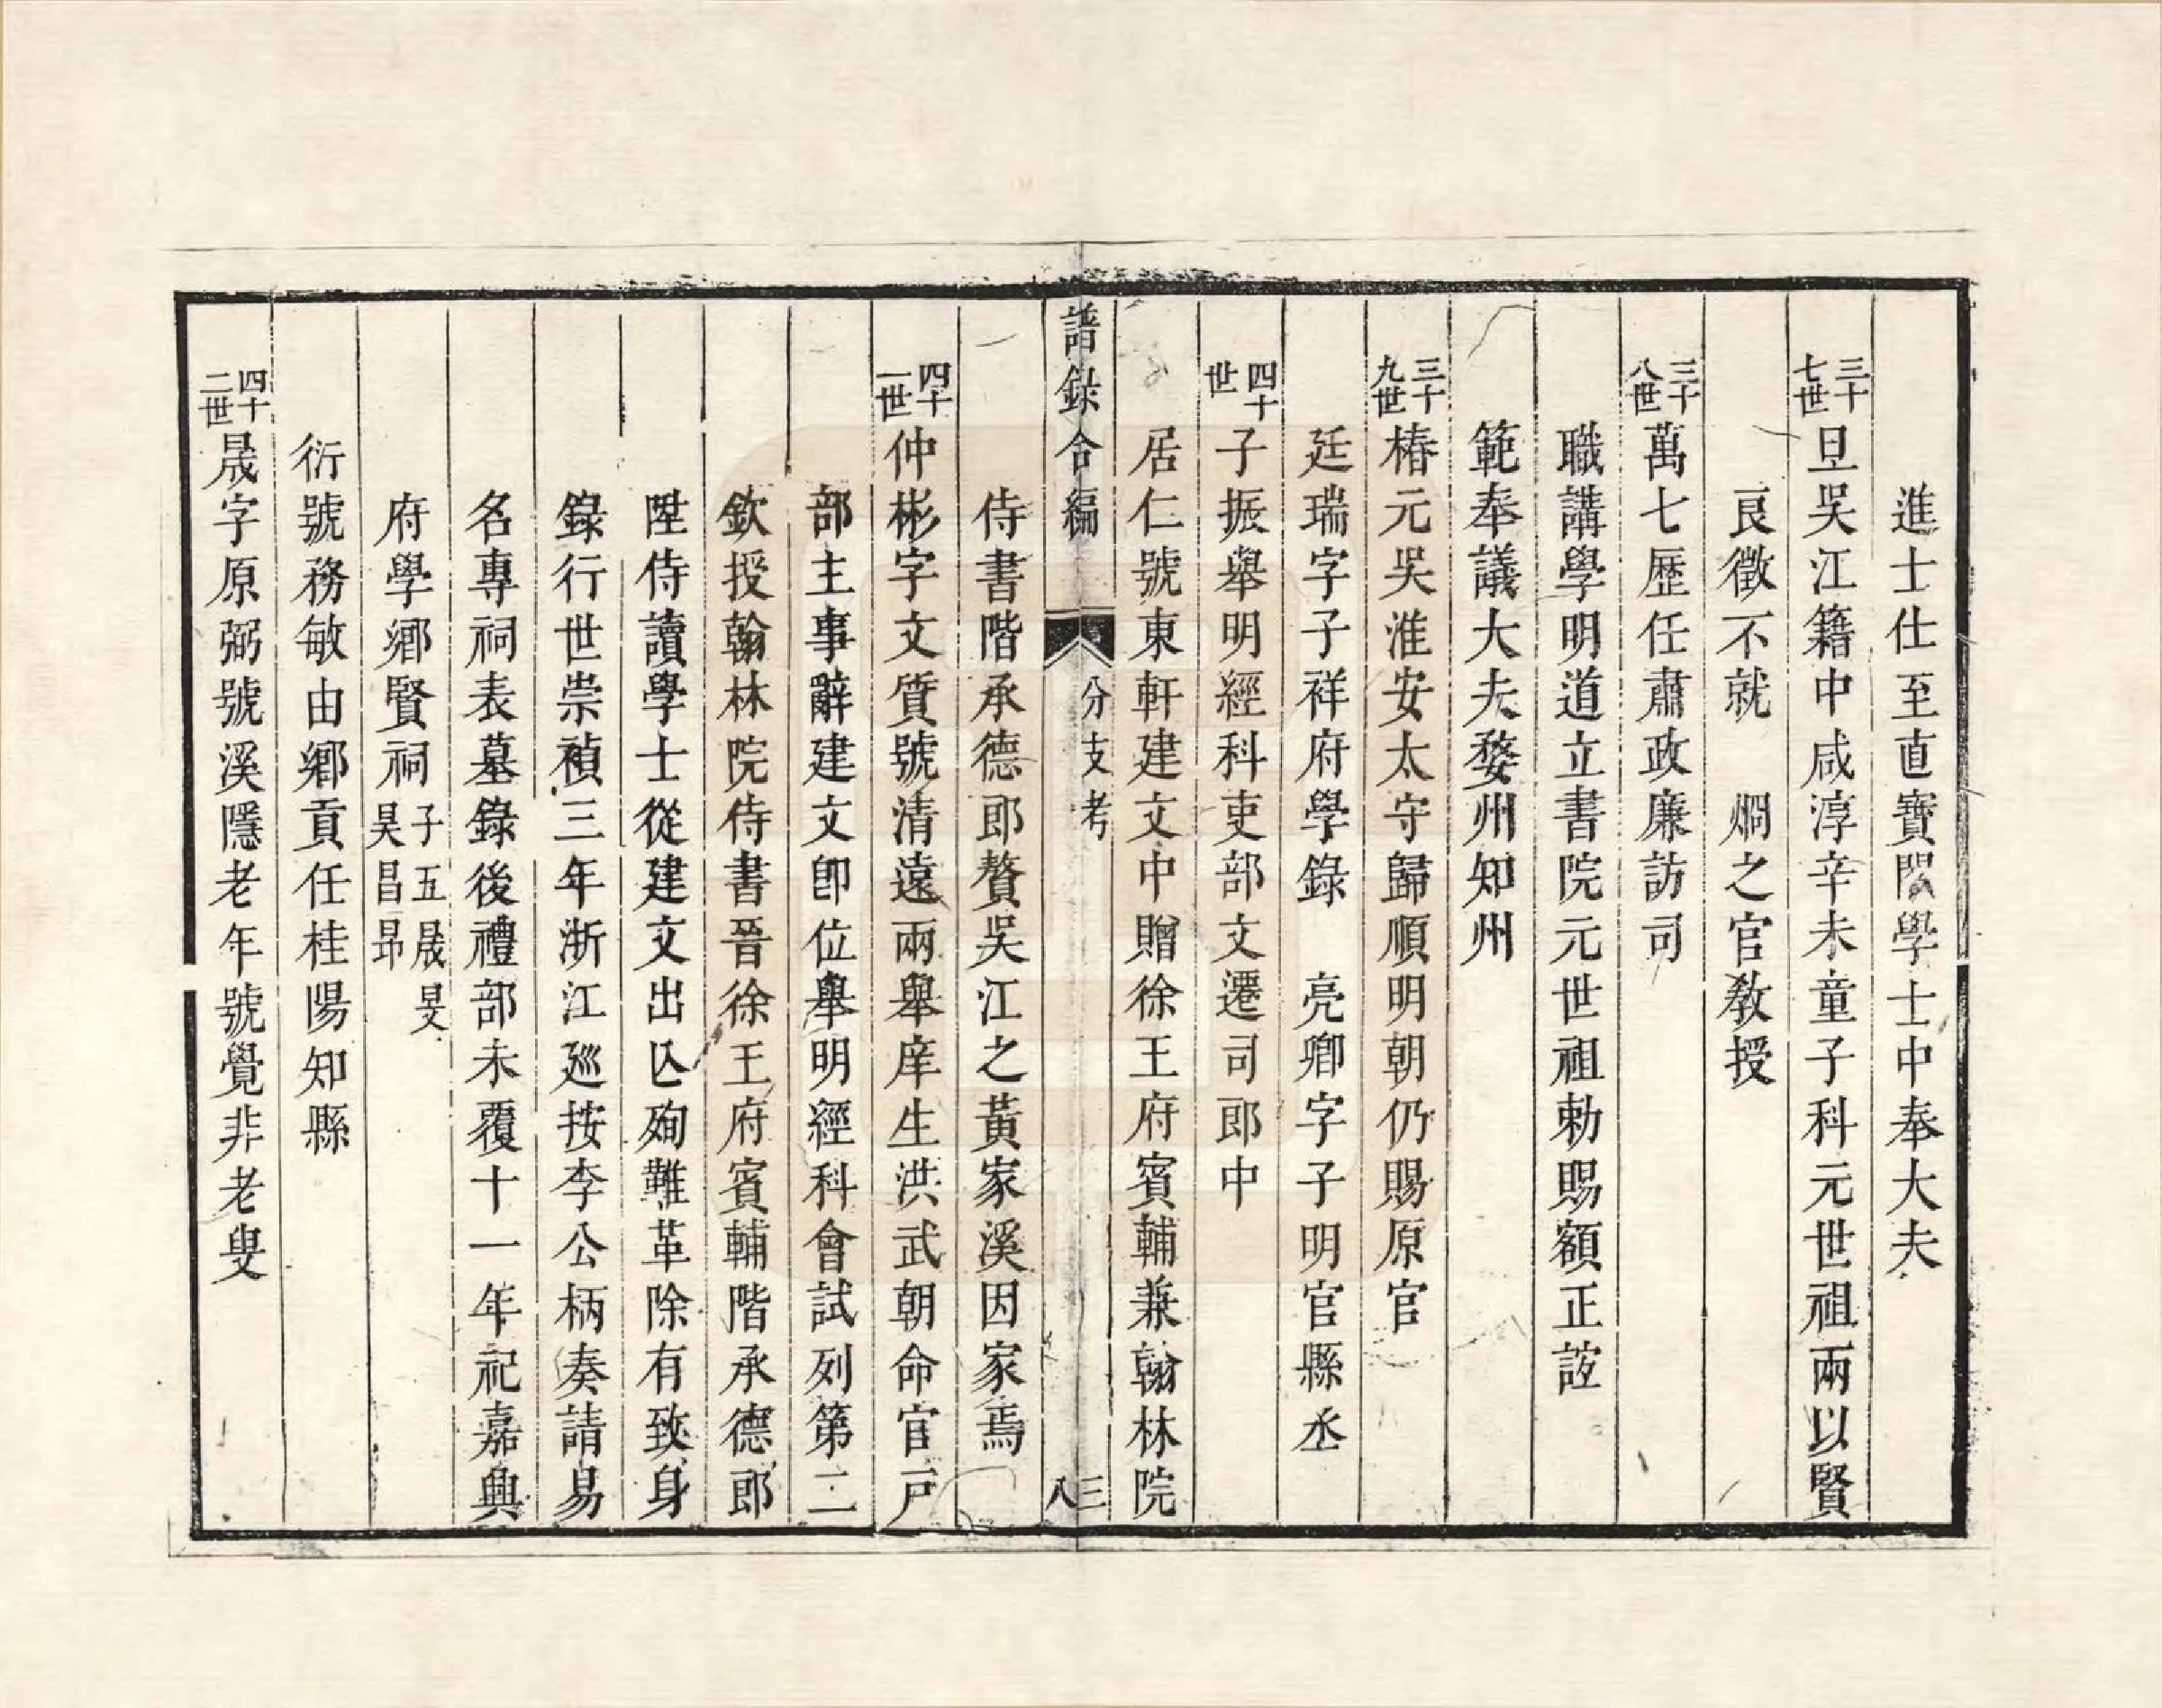 進士仕至直寶閣學士中奉大夫
三十七世旦吳江籍中咸淳辛未童子科元世祖兩以賢
良徵不就　烱之官教授
三十八世萬七歷任肅政廉訪司
職講學明道立書院元世祖勅賜額正誼
範奉議大夫婺州知州
三十九世椿元吳淮安太守歸順明朝仍賜原官
廷瑞字子祥府學錄　亮卿字子明官縣丞
四十世子振舉明經科吏部文遷司郎中
居仁號東軒建文中贈徐王府賓輔兼翰林院
譜錄合編　分支考　三八
侍書階承德郎贅吳江之黃家溪因家焉
四十一世仲彬字文質號清遠兩舉庠生洪武朝命官戶
部主事辭建文卽位舉明經科會試列第二
欽授翰林院侍書晉徐王府賓輔階承德郎
陞侍讀學士從建文出亾殉難革除有致身
錄行世崇禎三年浙江廵按李公柄奏請易
名專祠表墓錄後禮部未覆十一年祀嘉興
府學鄉賢祠子五晟旻昊昌昻
衍號務敏由鄉貢任桂陽知縣
四十二世晟字原弼號溪隱老年號覺非老叟